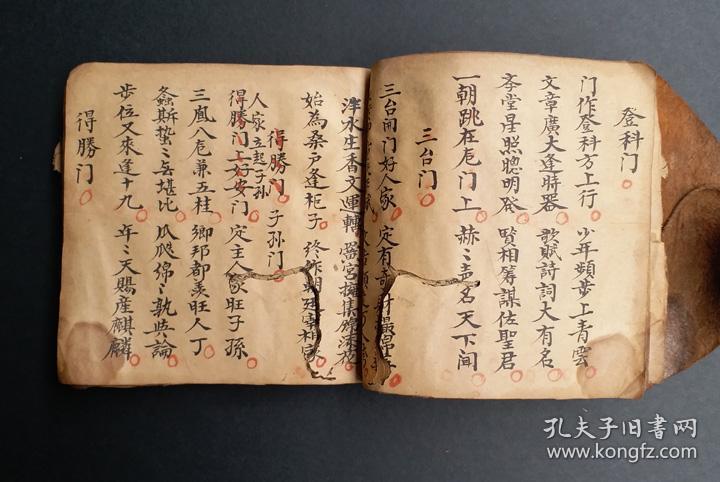 登科门
门作登科方上行 少年頻步上青雲
文章廣大逢時器 歌賦詩詞大有名
夲堂星照聰明發 賢相籌謀佐聖君
一朝跳在龙门上 赫〻声名天下间
三台门
三台開门好人家 定有
泮水生香文運轉
始為桑戸逢柜子 终作
得勝门 子孙门
人家立起子孙
得勝门上好安门 定主人家旺子孫
三鳯八龙兼五桂 鄉邦都羡旺人丁
螽斯蟄〻真堪比 瓜瓞绵〻孰與論
步位又來逢十九 年〻天賜産麒麟
得勝门
孔夫子旧书网
www.kongfz.com